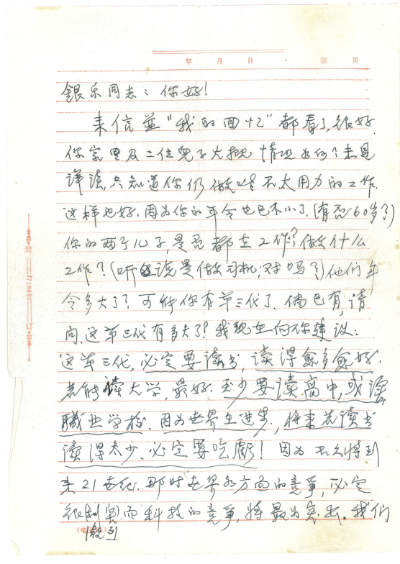 年 月 日 第 页
銀乐同志：你好！
来信并“我的回忆”都看了，很好.
你家里及二位儿子大概情况
详读，只知道你仍做些不太用力的工作
这样也好.因为你的年令也已不小了.(有否60岁了)
你的两个儿子是否都在工作？做什么
工作？(听说是做司机，对吗？)他们年
令多大了？可能你有第三代了.倘已有，请
问，这第三代有多大了！我现在向你建议：
这第三代，必定要读书，读得愈多愈好.
若能读大学，最好.至少要读高中，或读
職业学校.因为世界在进步，将来若读书
读得太少.必定要吃虧！因为不久将到
来21世纪.那时世界各方面的竞争，必定
很剧烈而科技的竞争，将最为突出.我们